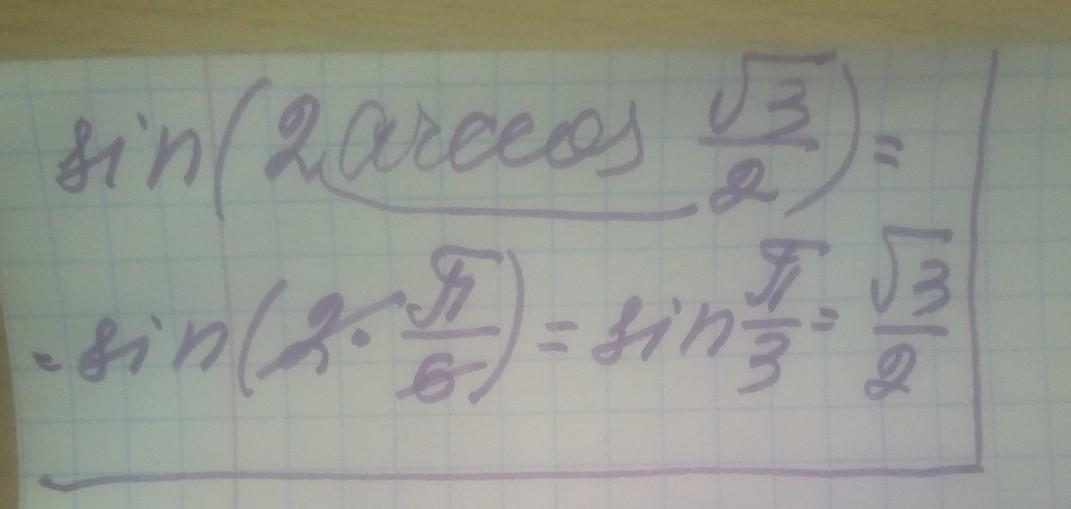 sin(2 arccos √3/2) =
= sin(2 · π/6) = sin π/3 = √3/2